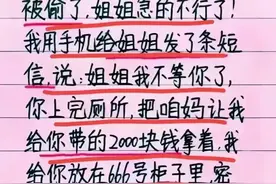 被偷了,姐姐急的不行了!
我用手机给姐姐发了条短
信,说:姐姐我不等你了,
你上完厕所,把咱妈让我
给你带的2000块钱拿着,我
给你放在666号柜子里,密